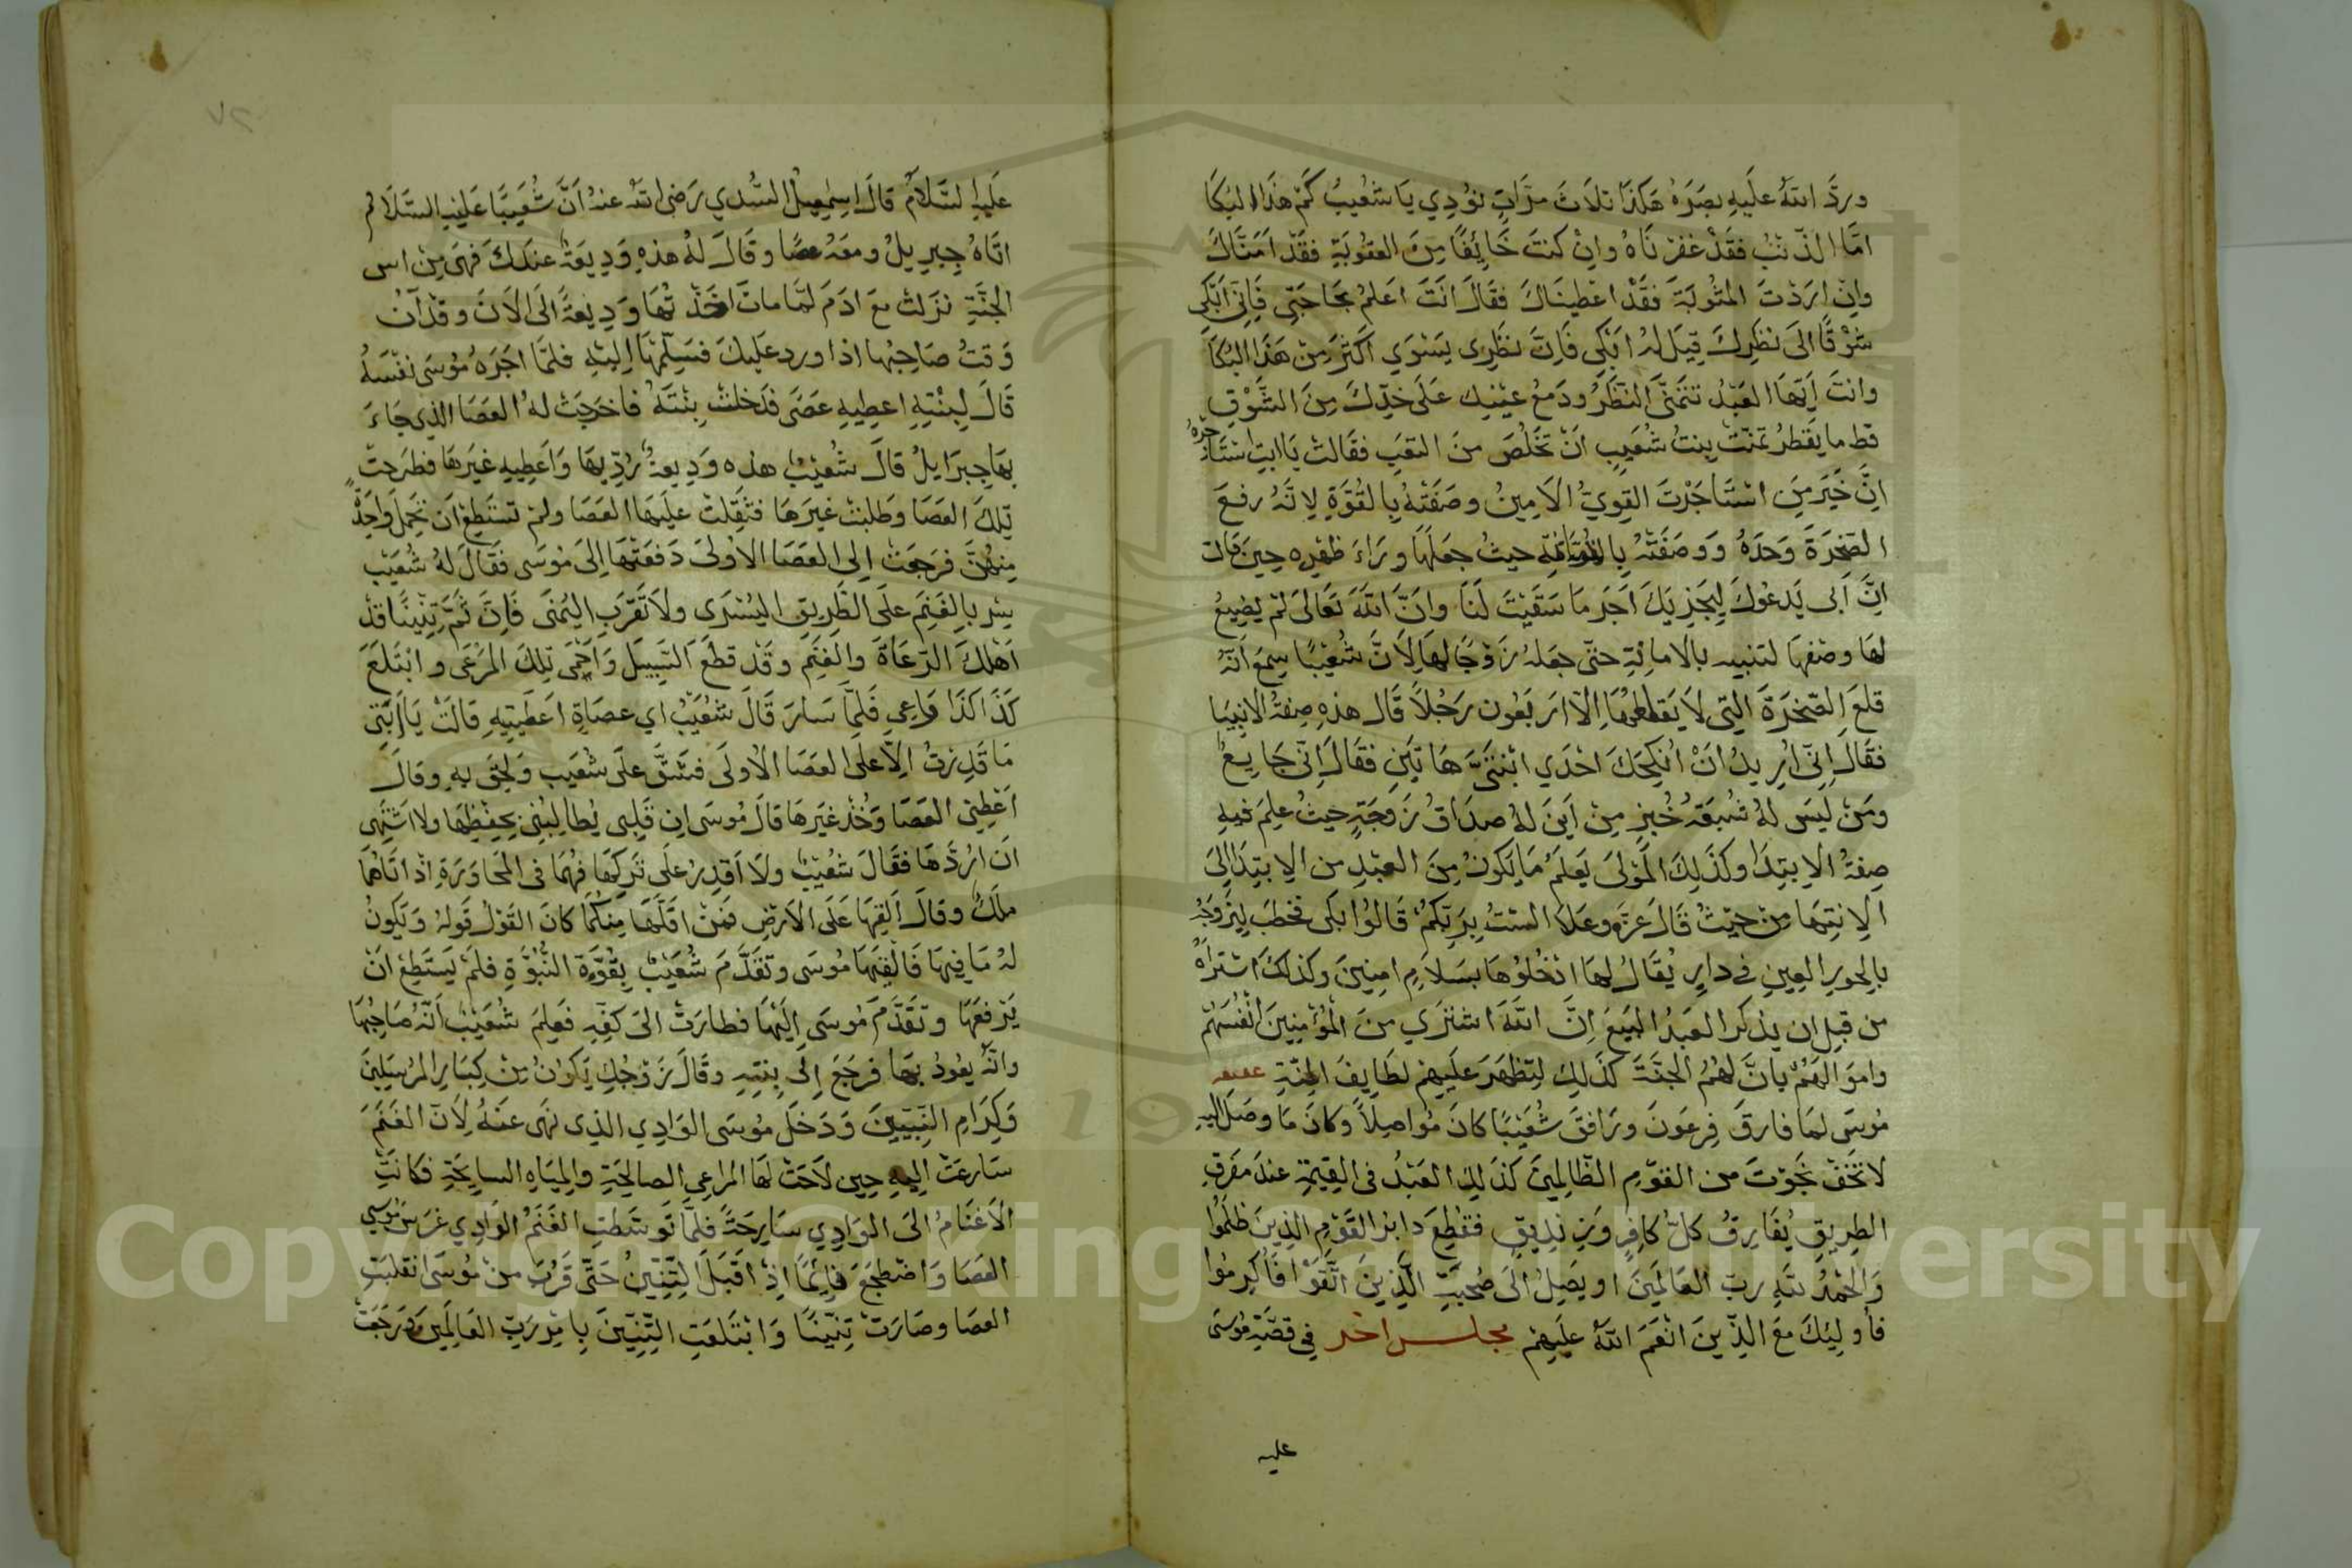 ورد الله عليه بصره هكذا ثلاث مرات نودي يا شعيب كم هذا البكا
اما الذنب فقد غفرناه وان كنت خائفا من العقوبة فقد امناك
وان اردت المثوبة فقد اعطيناك فقال انت اعلم بحاجتي فاني ابكي
شوقا الى نظرك قيل له ابكي فان نظري يسوي اكثر من هذا البكا
وانت ايها العبد تتمنى النظر ودمع عينيك على خدك من الشوق
قط ما يقطر تمنت بنت شعيب ان تخلص من التعب فقالت يا ابت استاجره
ان خير من استاجرت القوي الامين وصفته بالقوة لانه رفع
الصخرة وحده ووصفته حيث جعلها وراء ظهره حين قالت
ان ابي يدعوك ليجزيك اجر ما سقيت لنا وان الله تعالى لم يضيع
لها وصفها لنبيه بالامانة حتى جعله زوجا لها لان شعيبا سمع انه
قلع الصخرة التي لا يقطعها الا اربعون رجلا قال هذه صفة الانبيا
فقال اني اريد ان انكحك احدي ابنتي هاتين فقال اني جايع
ومن ليس له شبعة خبز من اين له صداق زوجة حيث علم فيه
صفة الابتدا وكذلك المولى يعلم ما يكون من العبد من الابتدا الى
الانتها من حيث قال عز وعلا الست بربكم قالوا بلى فخطب ليزوجه
بالحور العين في دار يقال لها ادخلوها بسلام امنين وكذلك اشتراه
من قبل ان يذكر العبد البيع ان الله اشتري من المؤمنين انفسهم
واموالهم بان لهم الجنة كذلك لتظهر عليهم لطايف المنة
موسى لما فارق فرعون ورافق شعيبا كان مواصلا وكان ما وصل اليه
لا تخف نجوت من القوم الظالمين كذلك العبد في القيمة عند مفرق
الطريق يفارق كل كافر وزنديق فقطع دابر القوم الذين ظلموا
والحمد لله رب العالمين او يصل الى صحبة الذين اتقوا فاكرموا
فاوليك مع الذين انعم الله عليهم مجلس اخر في قصة موسى
عليه
عليه السلام قال اسمعيل السدي رضي الله عنه ان شعيبا عليه السلام
اتاه جبريل ومعه عصا وقال له هذه وديعة عندك فهي من اس
الجنة نزلت مع ادم لما مات اخذتها وديعة الى الان وقد آن
وقت صاحبها اذا ورد عليك فسلمها اليه فلما اجره موسى نفسه
قال لبنته اعطيه عصى فدخلت بنته فاخرجت له العصا الذي جاء
بها جبرايل قال شعيب هذه وديعة رديها واعطيه غيرها فطرحت
تلك العصا وطلبت غيرها فثقلت عليها العصا ولم تستطع ان تحمل واحدة
منهن فرجعت الى العصا الاولى دفعتها الى موسى فقال له شعيب
سر بالغنم على الطريق اليسرى ولا تقرب اليمنى فان ثم تنينا قد
اهلك الرعاة والغنم وقد قطع السبيل واحمى تلك المرعى وابتلع
كذا كذا راعي فلما سار قال شعيب اي عصاة اعطيتيه قالت يا ابتي
ما قدرت الا على العصا الاولى فشق على شعيب ولحق به وقال
اعطني العصا وخذ غيرها قال موسى ان قلبي يطالبني بحفظها ولا اشتهي
ان اردها فقال شعيب ولا اقدر على تركها فهما في المحاورة اذ اتاهما
ملك وقال القها على الارض فمن اقلها منكما كان القول قوله ويكون
له ما فيها فالقها موسى وتقدم شعيب بقوة النبوة فلم يستطع ان
يرفعها وتقدم موسى اليها فطارت الى كفه فعلم شعيب انه صاحبها
وانه يعود بها فرجع الى بنته وقال زوجك يكون من كبار المرسلين
وكرام النبيين ودخل موسى الوادي الذي نهى عنه لان الغنم
سارعت اليه حين لاحت لها المراعي الصالحة والمياه السايحة فكانت
الاغنام الى الوادي سارحة فلما توسطت الغنم الوادي غرس موسي
العصا واضطجع نائما اذ اقبل التنين حتى قرب من موسى انقلبت
العصا وصارت تنينا وابتلعت التنين بامر رب العالمين ورجعت